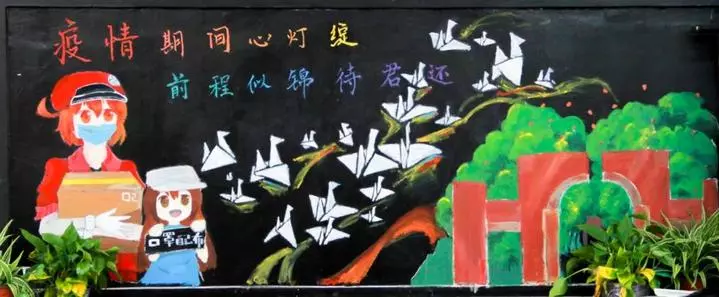 疫情期间心灯绽
前程似锦待君还
口罩配布